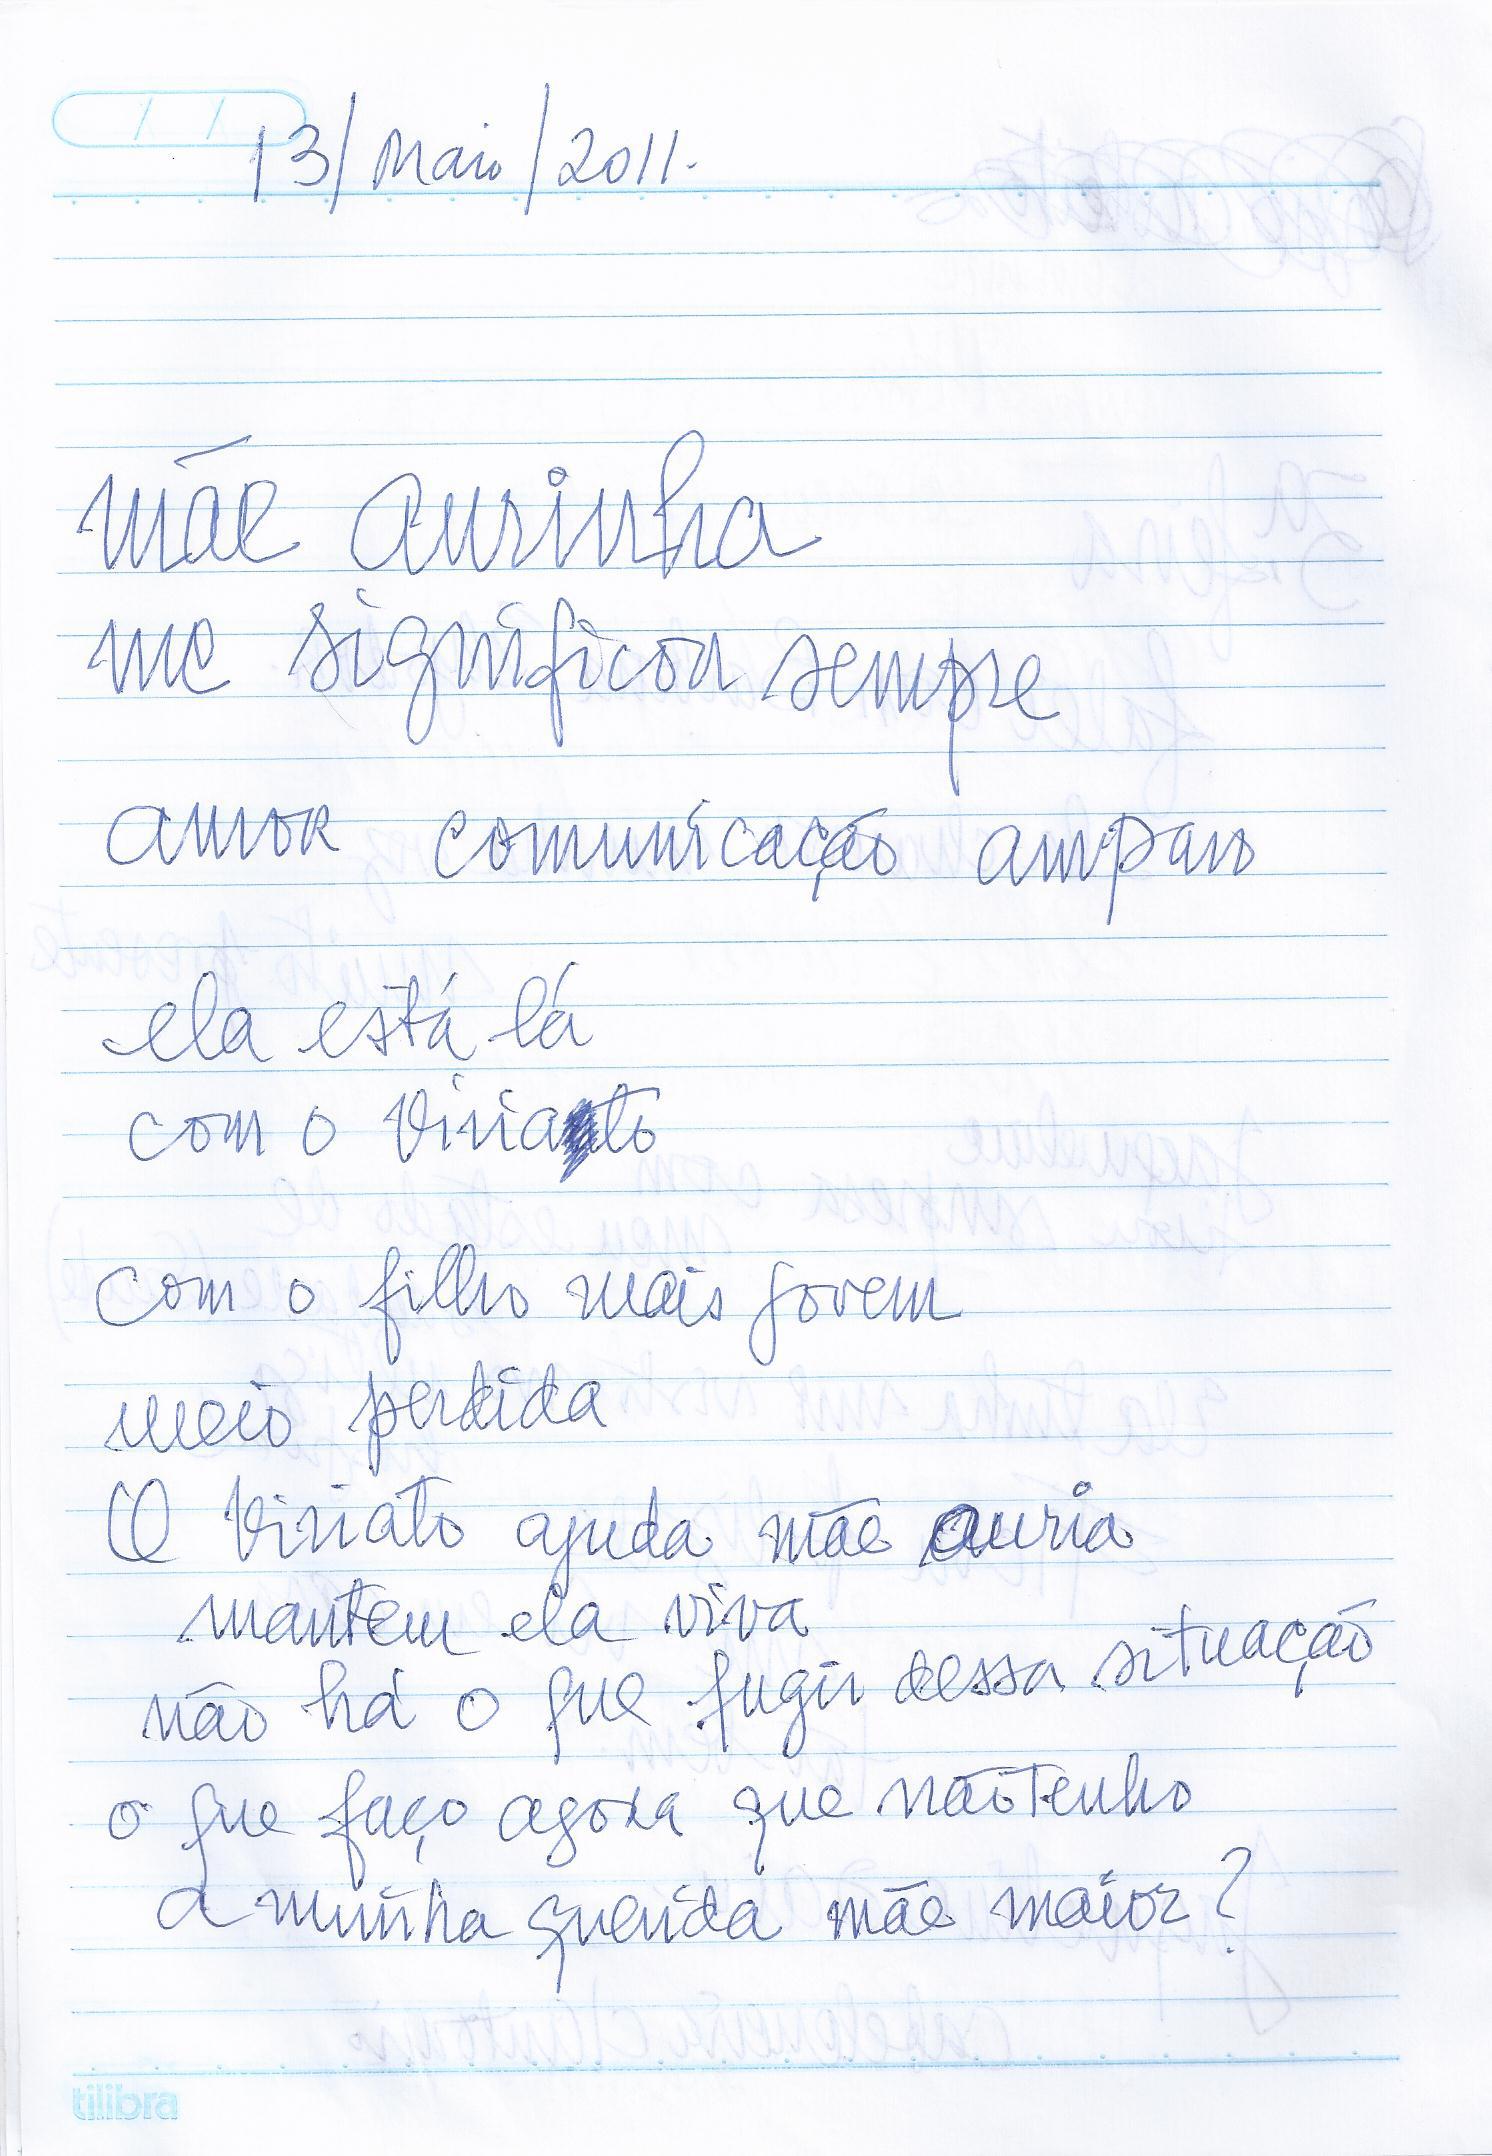 13/maio/2011.
mãe aurinha
me significou sempre
amor comunicação amparo
ela está lá
com o Viriato
com o filho mais jovem
meio perdida
O Viriato ajuda mãe auria
mantem ela viva
não há o que fugir dessa situação
o que faço agora que não tenho
a minha querida mãe maior?
tilibra